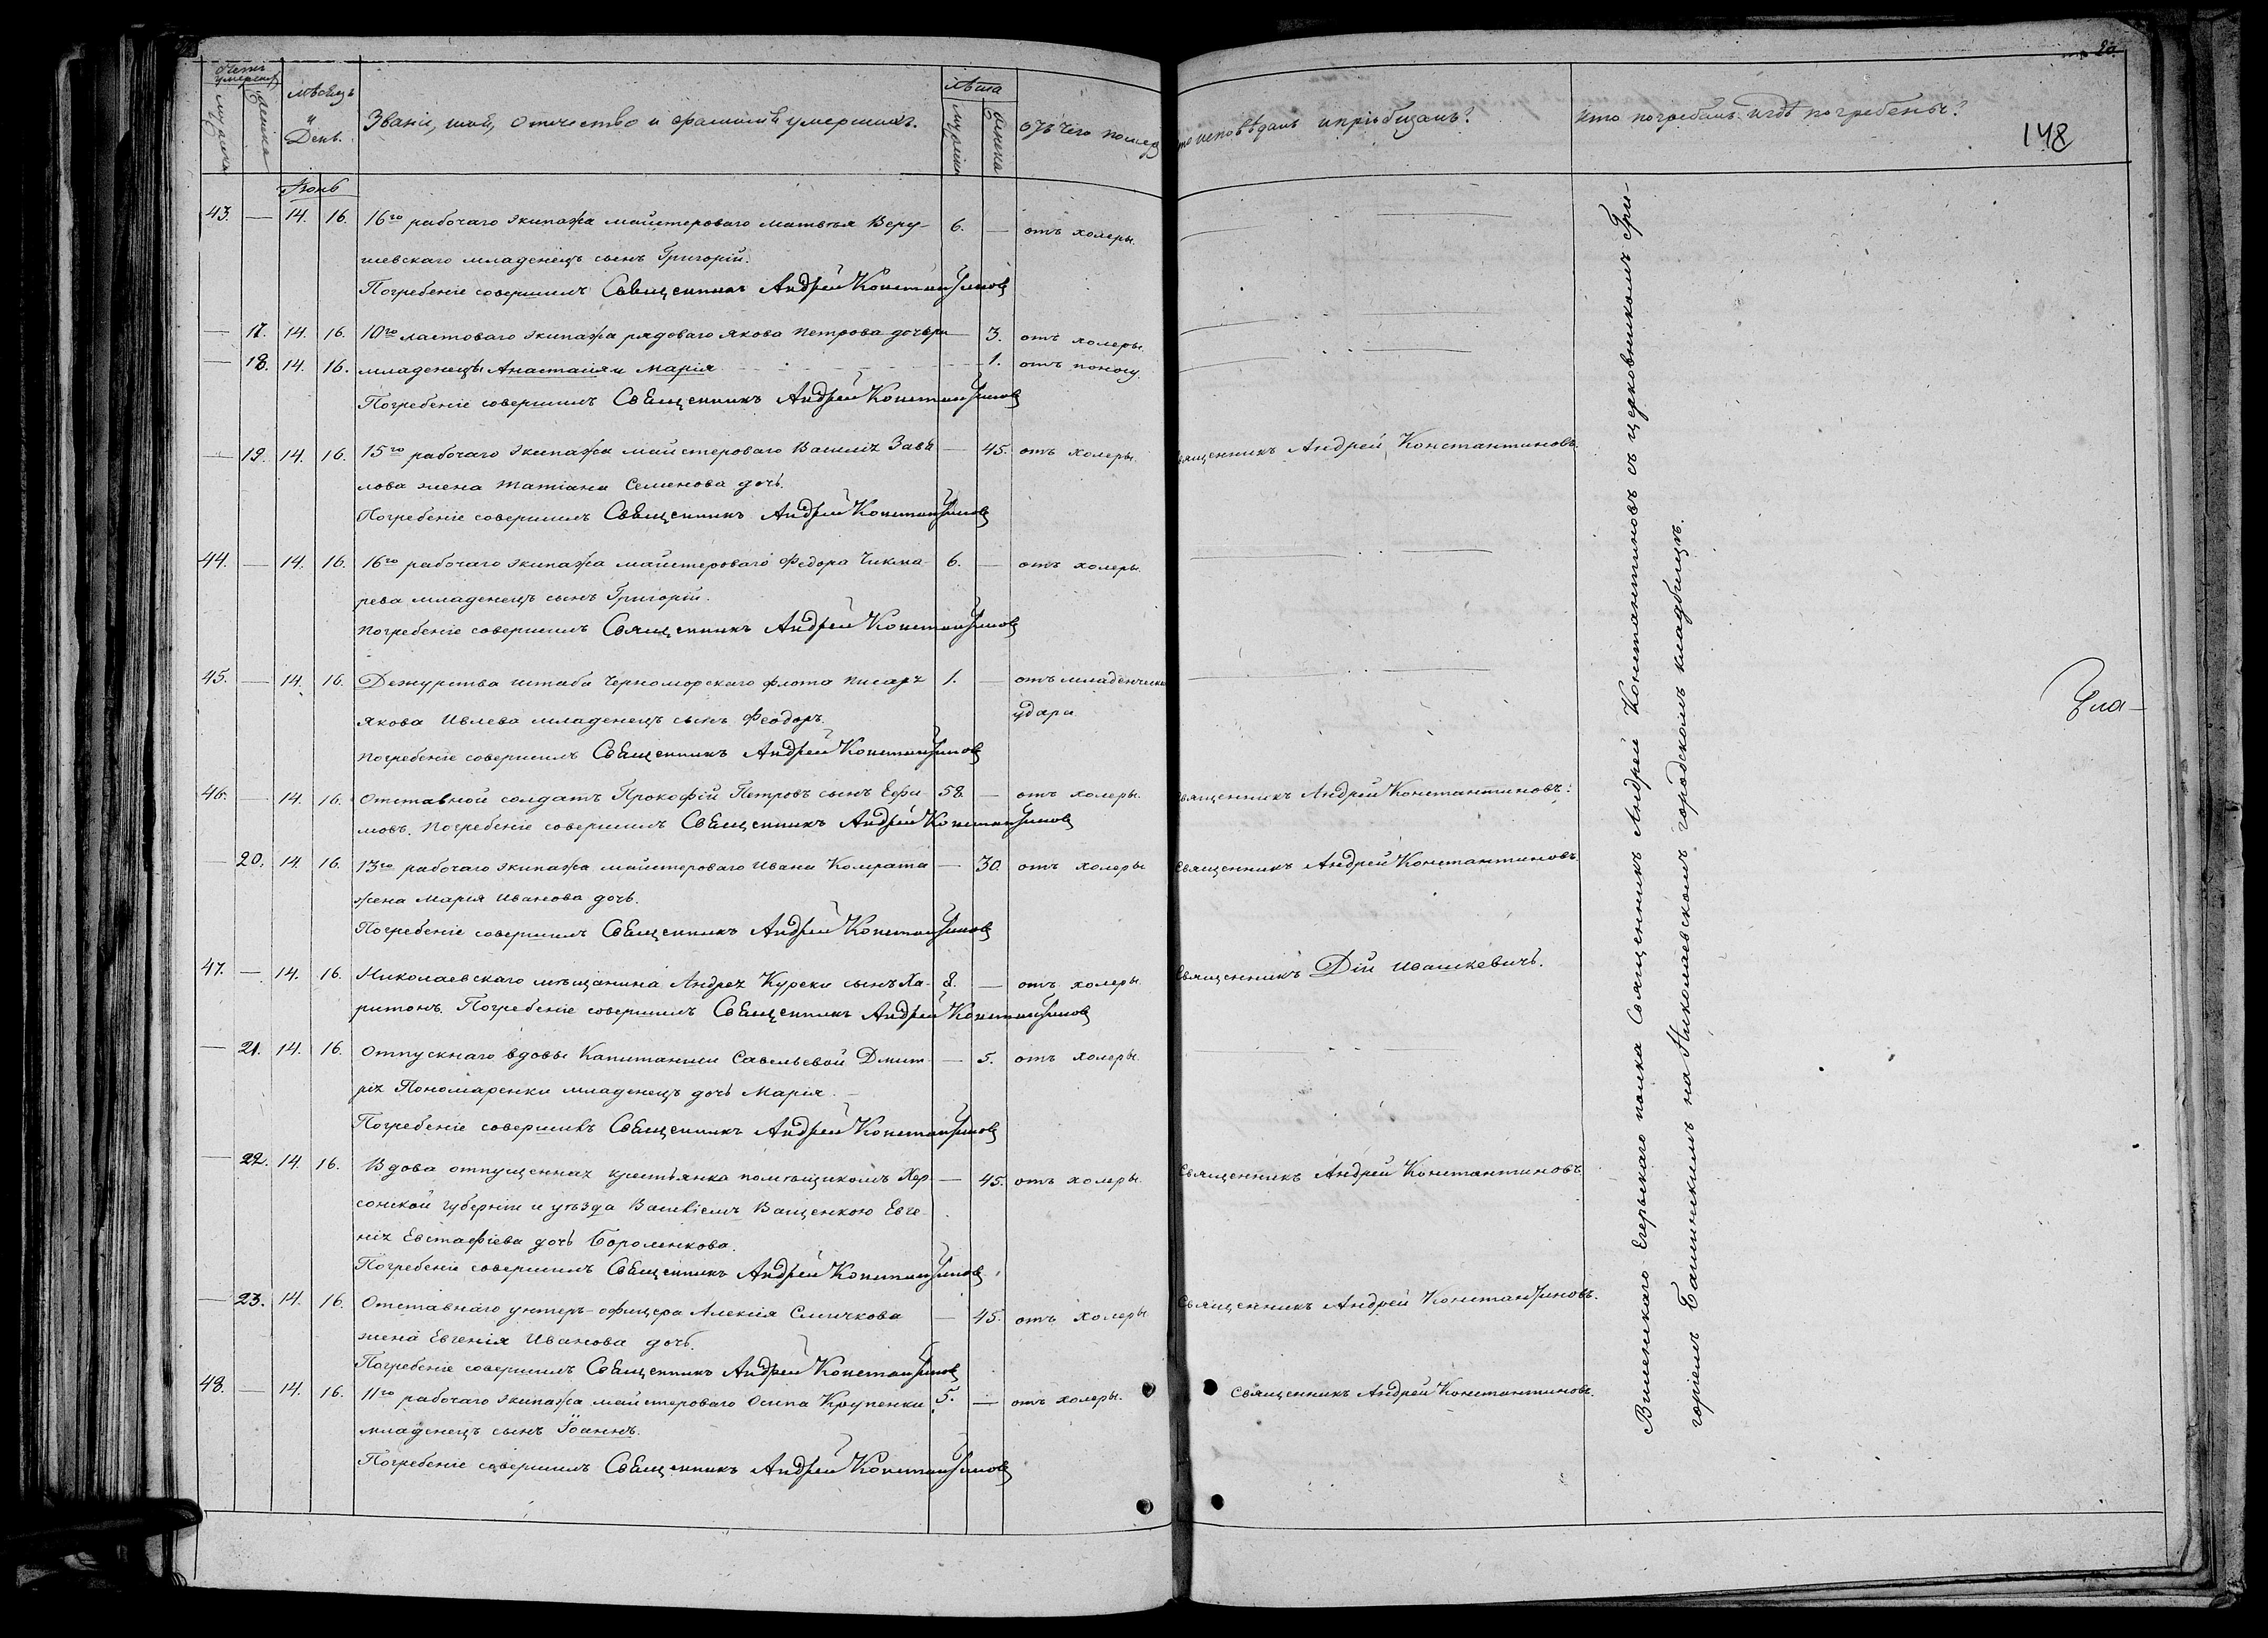 Счетъ умершихъ
мужска
женска
мѣсяцъ
и
День.
Званіе, имя, отчество и фамилія умершихъ.
Лѣта
мужеска
женска
отъ чего померъ
кто исповѣдалъ и пріобщалъ?
кто погребалъ и гдѣ погребенъ?
20.
148
Іюнь
43. — 14. 16. 16го рабочаго экипажа майстероваго Матвѣя Веру- 6. — отъ холеры.
шевскаго младенецъ сынъ Григорій.
Погребеніе совершилъ Священникъ Андрей Константиновъ
— 17. 14. 16. 10го ластоваго экипажа рядоваго Якова Петрова дочери — 3. отъ холеры.
— 18. 14. 16. младенецы Анастасія и Марія — 1. отъ поносу.
Погребеніе совершилъ Священникъ Андрей Константиновъ
— 19. 14. 16. 15го рабочаго экипажа майстероваго Василія Завя — 45. отъ холеры. Священникъ Андрей Константиновъ.
лова жена Татіана Семенова дочь.
Погребеніе совершилъ Священникъ Андрей Константиновъ
44. — 14. 16. 16го рабочаго экипажа майстероваго Федора Чикма- 6. — отъ холеры.
рева младенецъ сынъ Григорій.
Погребеніе совершилъ Священникъ Андрей Константиновъ
45. — 14. 16. Дежурства штаба Черноморскаго флота писаря 1. — отъ младенческ
Якова Ивлева младенецъ сынъ Феодоръ. удара
Погребеніе совершилъ Священникъ Андрей Константиновъ
46. 14. 16. Отставной солдатъ Прокофій Петровъ сынъ Ефи- 58. — отъ холеры. Священникъ Андрей Константиновъ.
мовъ. Погребеніе совершилъ Священникъ Андрей Константиновъ
— 20. 14. 16. 13го рабочаго экипажа майстероваго Ивана Комрата — 30. отъ холеры Священникъ Андрей Константиновъ.
жена Марія Иванова дочь.
Погребеніе совершилъ Священникъ Андрей Константиновъ
47. — 14. 16. Николаевскаго мѣщанина Андрея Курски сынъ Ха- 8. — отъ холеры Священникъ Дій Ивашкевичъ.
ритонъ. Погребеніе совершилъ Священникъ Андрей Константиновъ
— 21. 14. 16. Отпускнаго вдовы Капитанши Савельевой Дмит- — 5. отъ холеры.
рія Пономаренки младенецъ дочь Марія.
Погребеніе совершилъ Священникъ Андрей Константиновъ
— 22. 14. 16. Вдова отпущенная крестьянка помѣщикомъ Хер- — 45. отъ холеры. Священникъ Андрей Константиновъ
сонской губерніи и уѣзда Василіемъ Ващенкою Евге-
нія Евстафіева дочь Бороленкова.
Погребеніе совершилъ Священникъ Андрей Константиновъ
— 23. 14. 16. Отставнаго унтеръ-офицера Алексія Смычкова — 45. отъ холеры Священникъ Андрей Константиновъ.
жена Евгенія Иванова дочь.
Погребеніе совершилъ Священникъ Андрей Константиновъ
48. — 14. 16. 11го рабочаго экипажа майстероваго Осипа Крупенки 5. — отъ холеры. Священникъ Андрей Константиновъ.
младенецъ сынъ Іоаннъ.
Погребеніе совершилъ Священникъ Андрей Константиновъ
Виленскаго Егерскаго полка Священникъ Андрей Константиновъ съ церковникомъ Гри-
горіемъ Башинскимъ на Николаевскомъ городскомъ кладбищѣ.